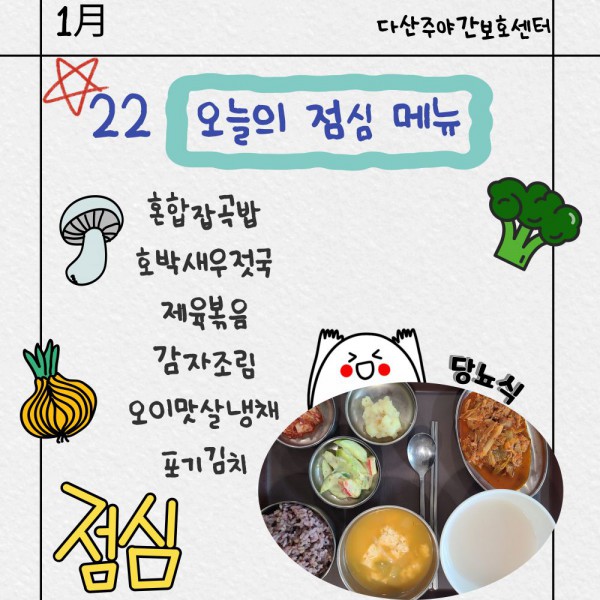 1月
다산주야간보호센터
22 오늘의 점심 메뉴
혼합잡곡밥
호박새우젓국
제육볶음
감자조림
오이맛살냉채
포기김치
당뇨식
점심